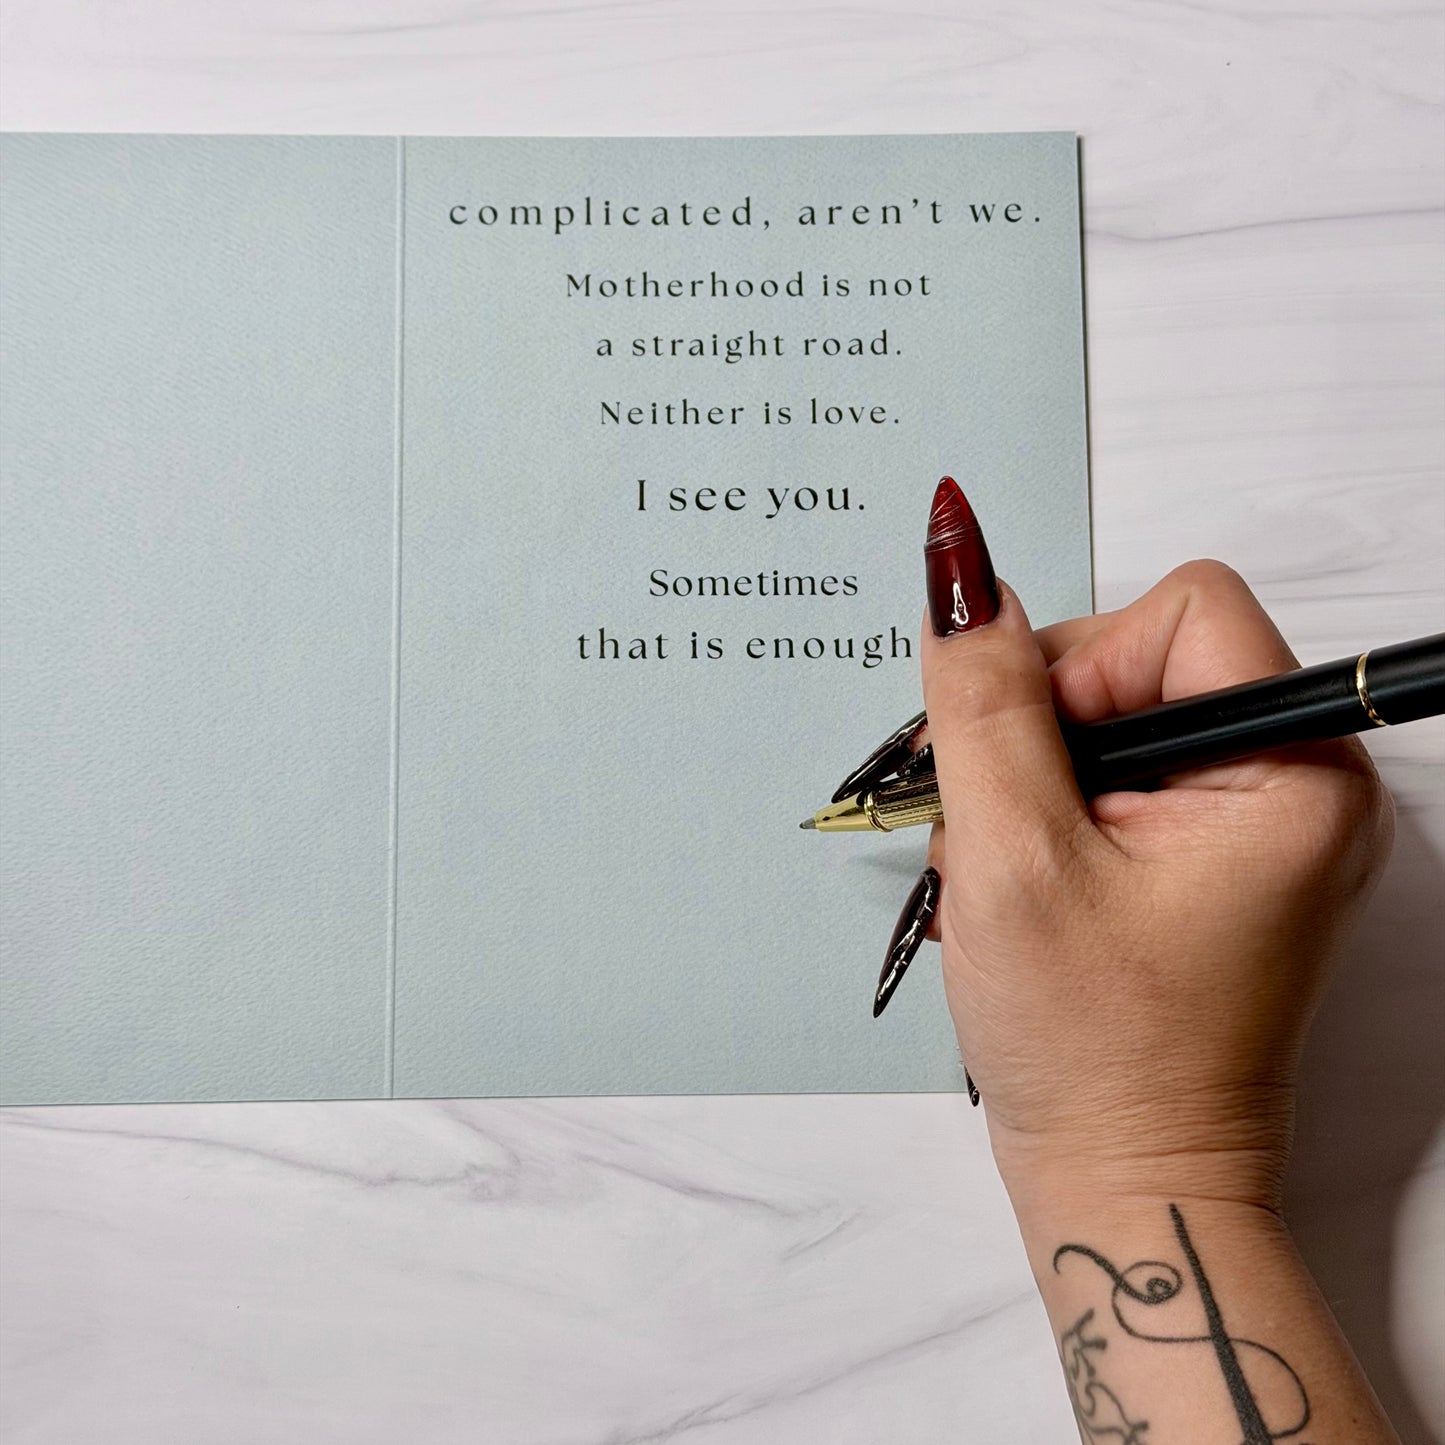 complicated, aren’t we.
Motherhood is not
a straight road.
Neither is love.
I see you.
Sometimes
that is enough